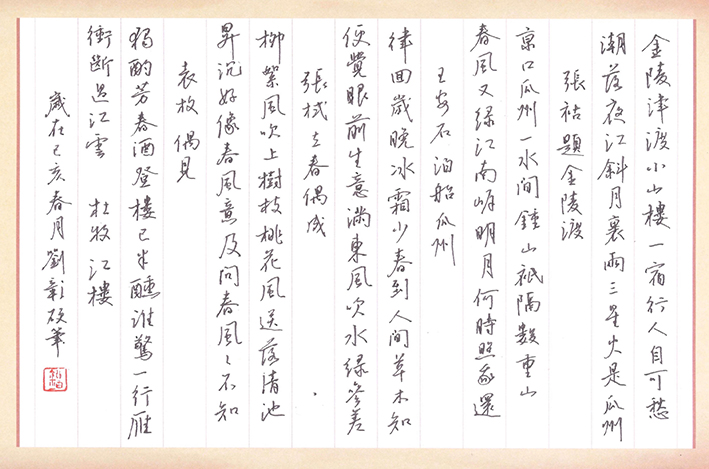 金陵津渡小山樓一宿行人自可愁
潮落夜江斜月裏兩三星火是瓜州
張祜題金陵渡
京口瓜州一水間鍾山祇隔數重山
春風又綠江南岸明月何時照我還
王安石 泊船瓜州
律回歲晚冰霜少春到人間草木知
便覺眼前生意滿東風吹水綠參差
張栻立春偶成
柳絮風吹上樹枝桃花風送落清池
昇沉好像春風意及問春風〻不知
袁枚 偶見
獨酌芳春酒登樓已半醺誰驚一行雁
衝斷過江雲 杜牧 江樓
歲在己亥春月劉彰碩筆